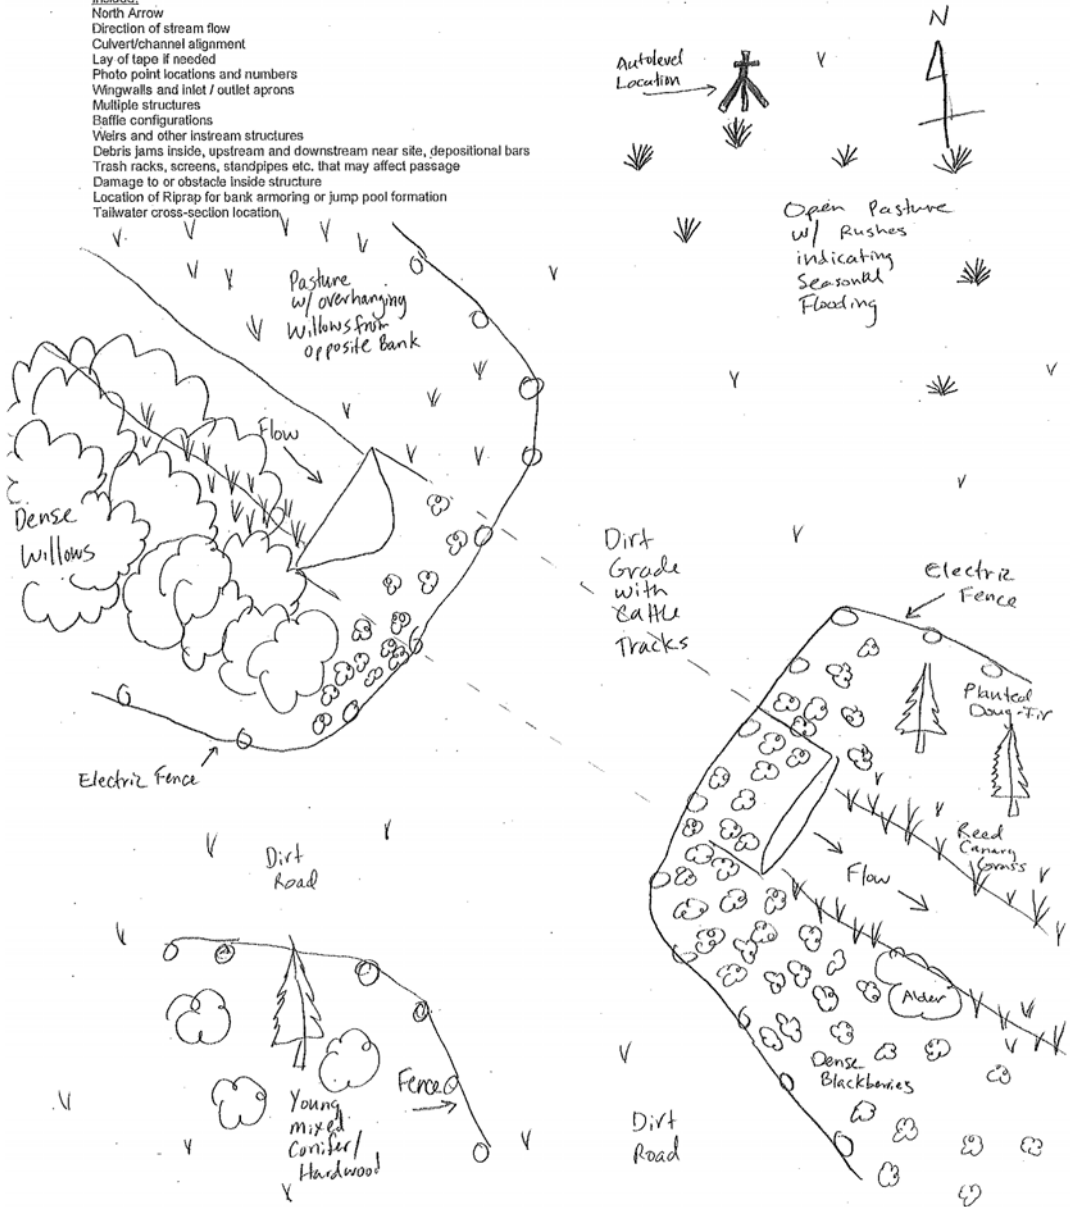 Included:
North Arrow
Direction of stream flow
Culvert/channel alignment
Lay of tape if needed
Photo point locations and numbers
Wingwalls and inlet / outlet aprons
Multiple structures
Baffle configurations
Weirs and other instream structures
Debris jams inside, upstream and downstream near site, depositional bars
Trash racks, screens, standpipes etc. that may affect passage
Damage to or obstacle inside structure
Location of Riprap for bank armoring or jump pool formation
Tailwater cross-section location
Autolevel
Location
N
Open Pasture
w/ Rushes
indicating
Seasonal
Flooding
Pasture
w/ overhanging
Willows from
opposite Bank
Flow
Dense
Willows
Electric Fence
Dirt
Grade
with
Cattle
Tracks
Electric
Fence
Planted
Doug-Fir
Reed
Canary
Grass
Flow
Alder
Dense
Blackberries
Dirt
Road
Fence
Young
mixed
Conifer/
Hardwood
Dirt
Road